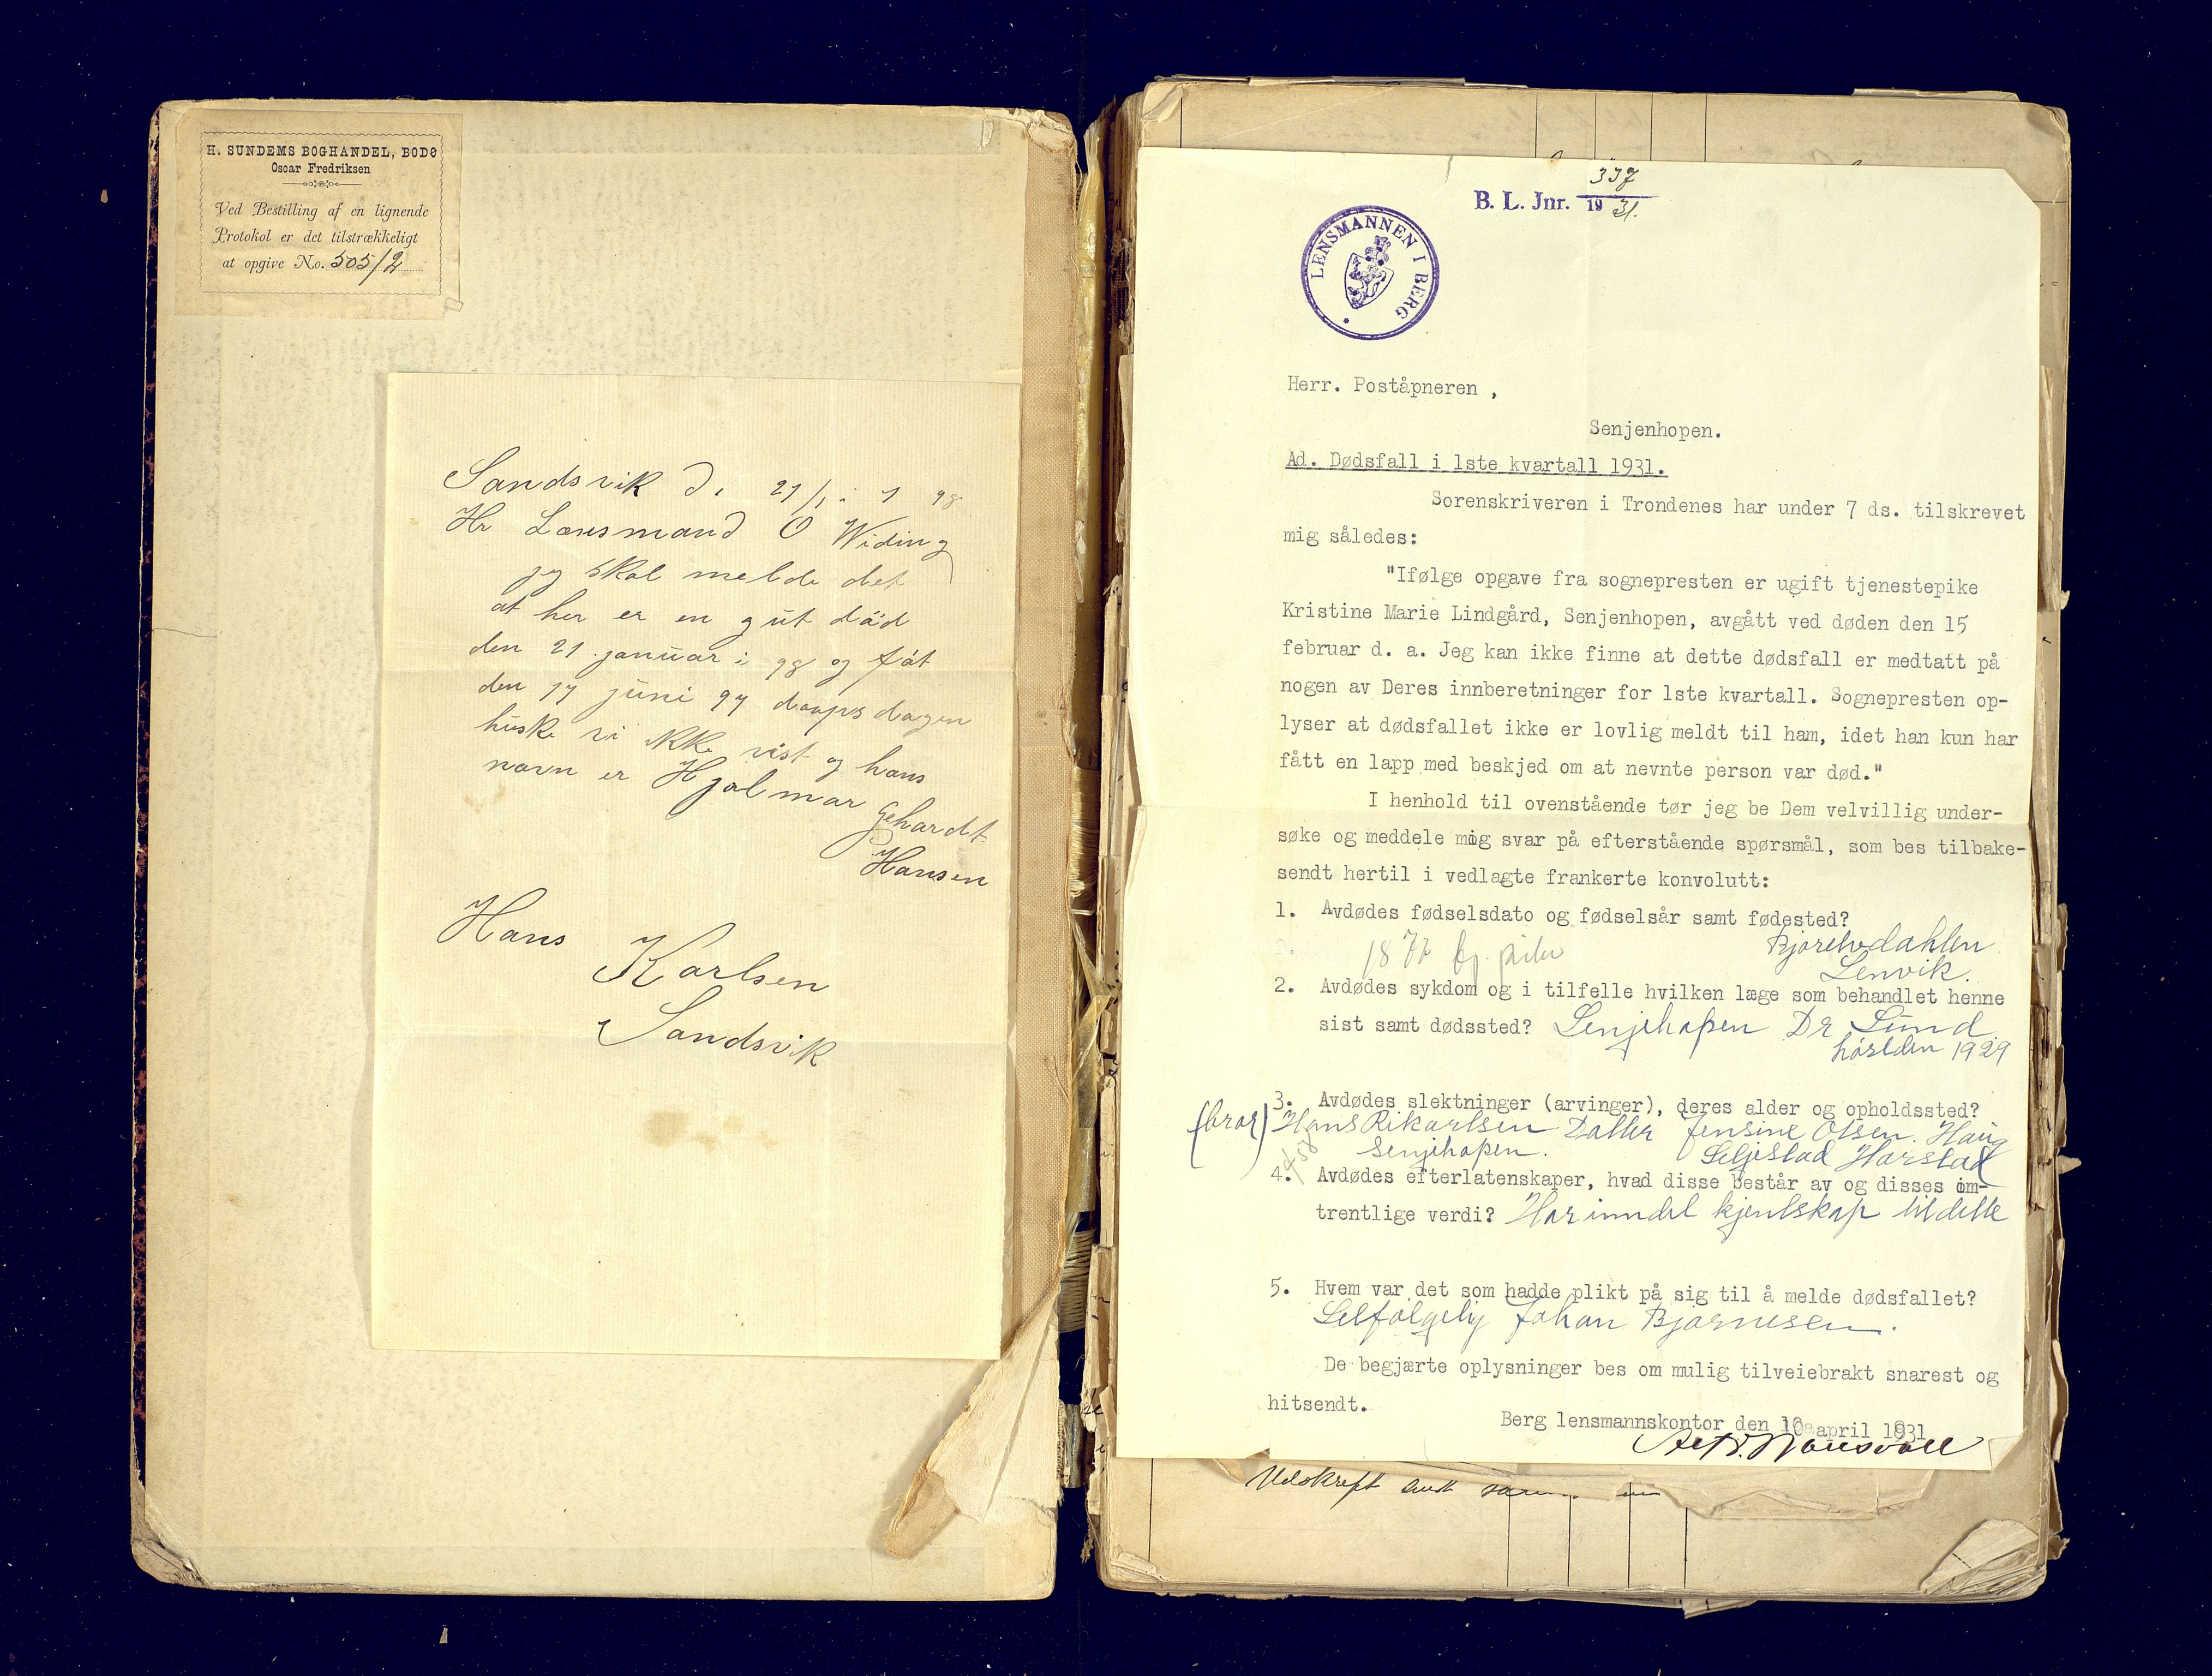 H. SUNDEMS BOGHANDEL, BODØ
Oscar Fredriksen
Ved Bestilling af en lignende
Protokol er det tilstrækkeligt
at opgive No. 505/2
Sandsvik d. 21/1 i 98
Hr Lænsmand O Widing
jeg skal melde det
at her er en gut död
den 21 januar i 98 og föt
den 17 juni 97 daapsdagen
huske vi ikke vist og hans
navn er Hjalmar Gehardt
Hansen
Hans Karlsen
Sandsvik
B. L. Jnr. 337
1931.
LENSMANNEN I BERG
Herr. Poståpneren ,
Senjenhopen.
Ad. Dødsfall i 1ste kvartall 1931.
Sorenskriveren i Trondenes har under 7 ds. tilskrevet
mig således:
"Ifølge opgave fra sognepresten er ugift tjenestepike
Kristine Marie Lindgård, Senjenhopen, avgått ved døden den 15
februar d. a. Jeg kan ikke finne at dette dødsfall er medtatt på
nogen av Deres innberetninger for 1ste kvartall. Sognepresten op-
lyser at dødsfallet ikke er lovlig meldt til ham, idet han kun har
fått en lapp med beskjed om at nevnte person var død."
I henhold til ovenstående tør jeg be Dem velvillig under-
søke og meddele mig svar på efterstående spørsmål, som bes tilbake-
sendt hertil i vedlagte frankerte konvolutt:
1. Avdødes fødselsdato og fødselsår samt fødested?
Lenvik.
2. Avdødes sykdom og i tilfelle hvilken læge som behandlet henne
sist samt dødssted? Senjehopen Dr Lund
hösten 1929
3. Avdødes slektninger (arvinger), deres alder og opholdssted?
(bror) Hans Rikartsen Datter Jensine Olsen. Haug
Senjehopen. Seljestad Harstad
4. Avdødes efterlatenskaper, hvad disse består av og disses om-
trentlige verdi? Har inndel kjentskap til dette
5. Hvem var det som hadde plikt på sig til å melde dødsfallet?
Selfølgelig Johan Bjørnesen.
De begjærte oplysninger bes om mulig tilveiebrakt snarest og
hitsendt.
Berg lensmannskontor den 10 april 1931
Udskrift sendt